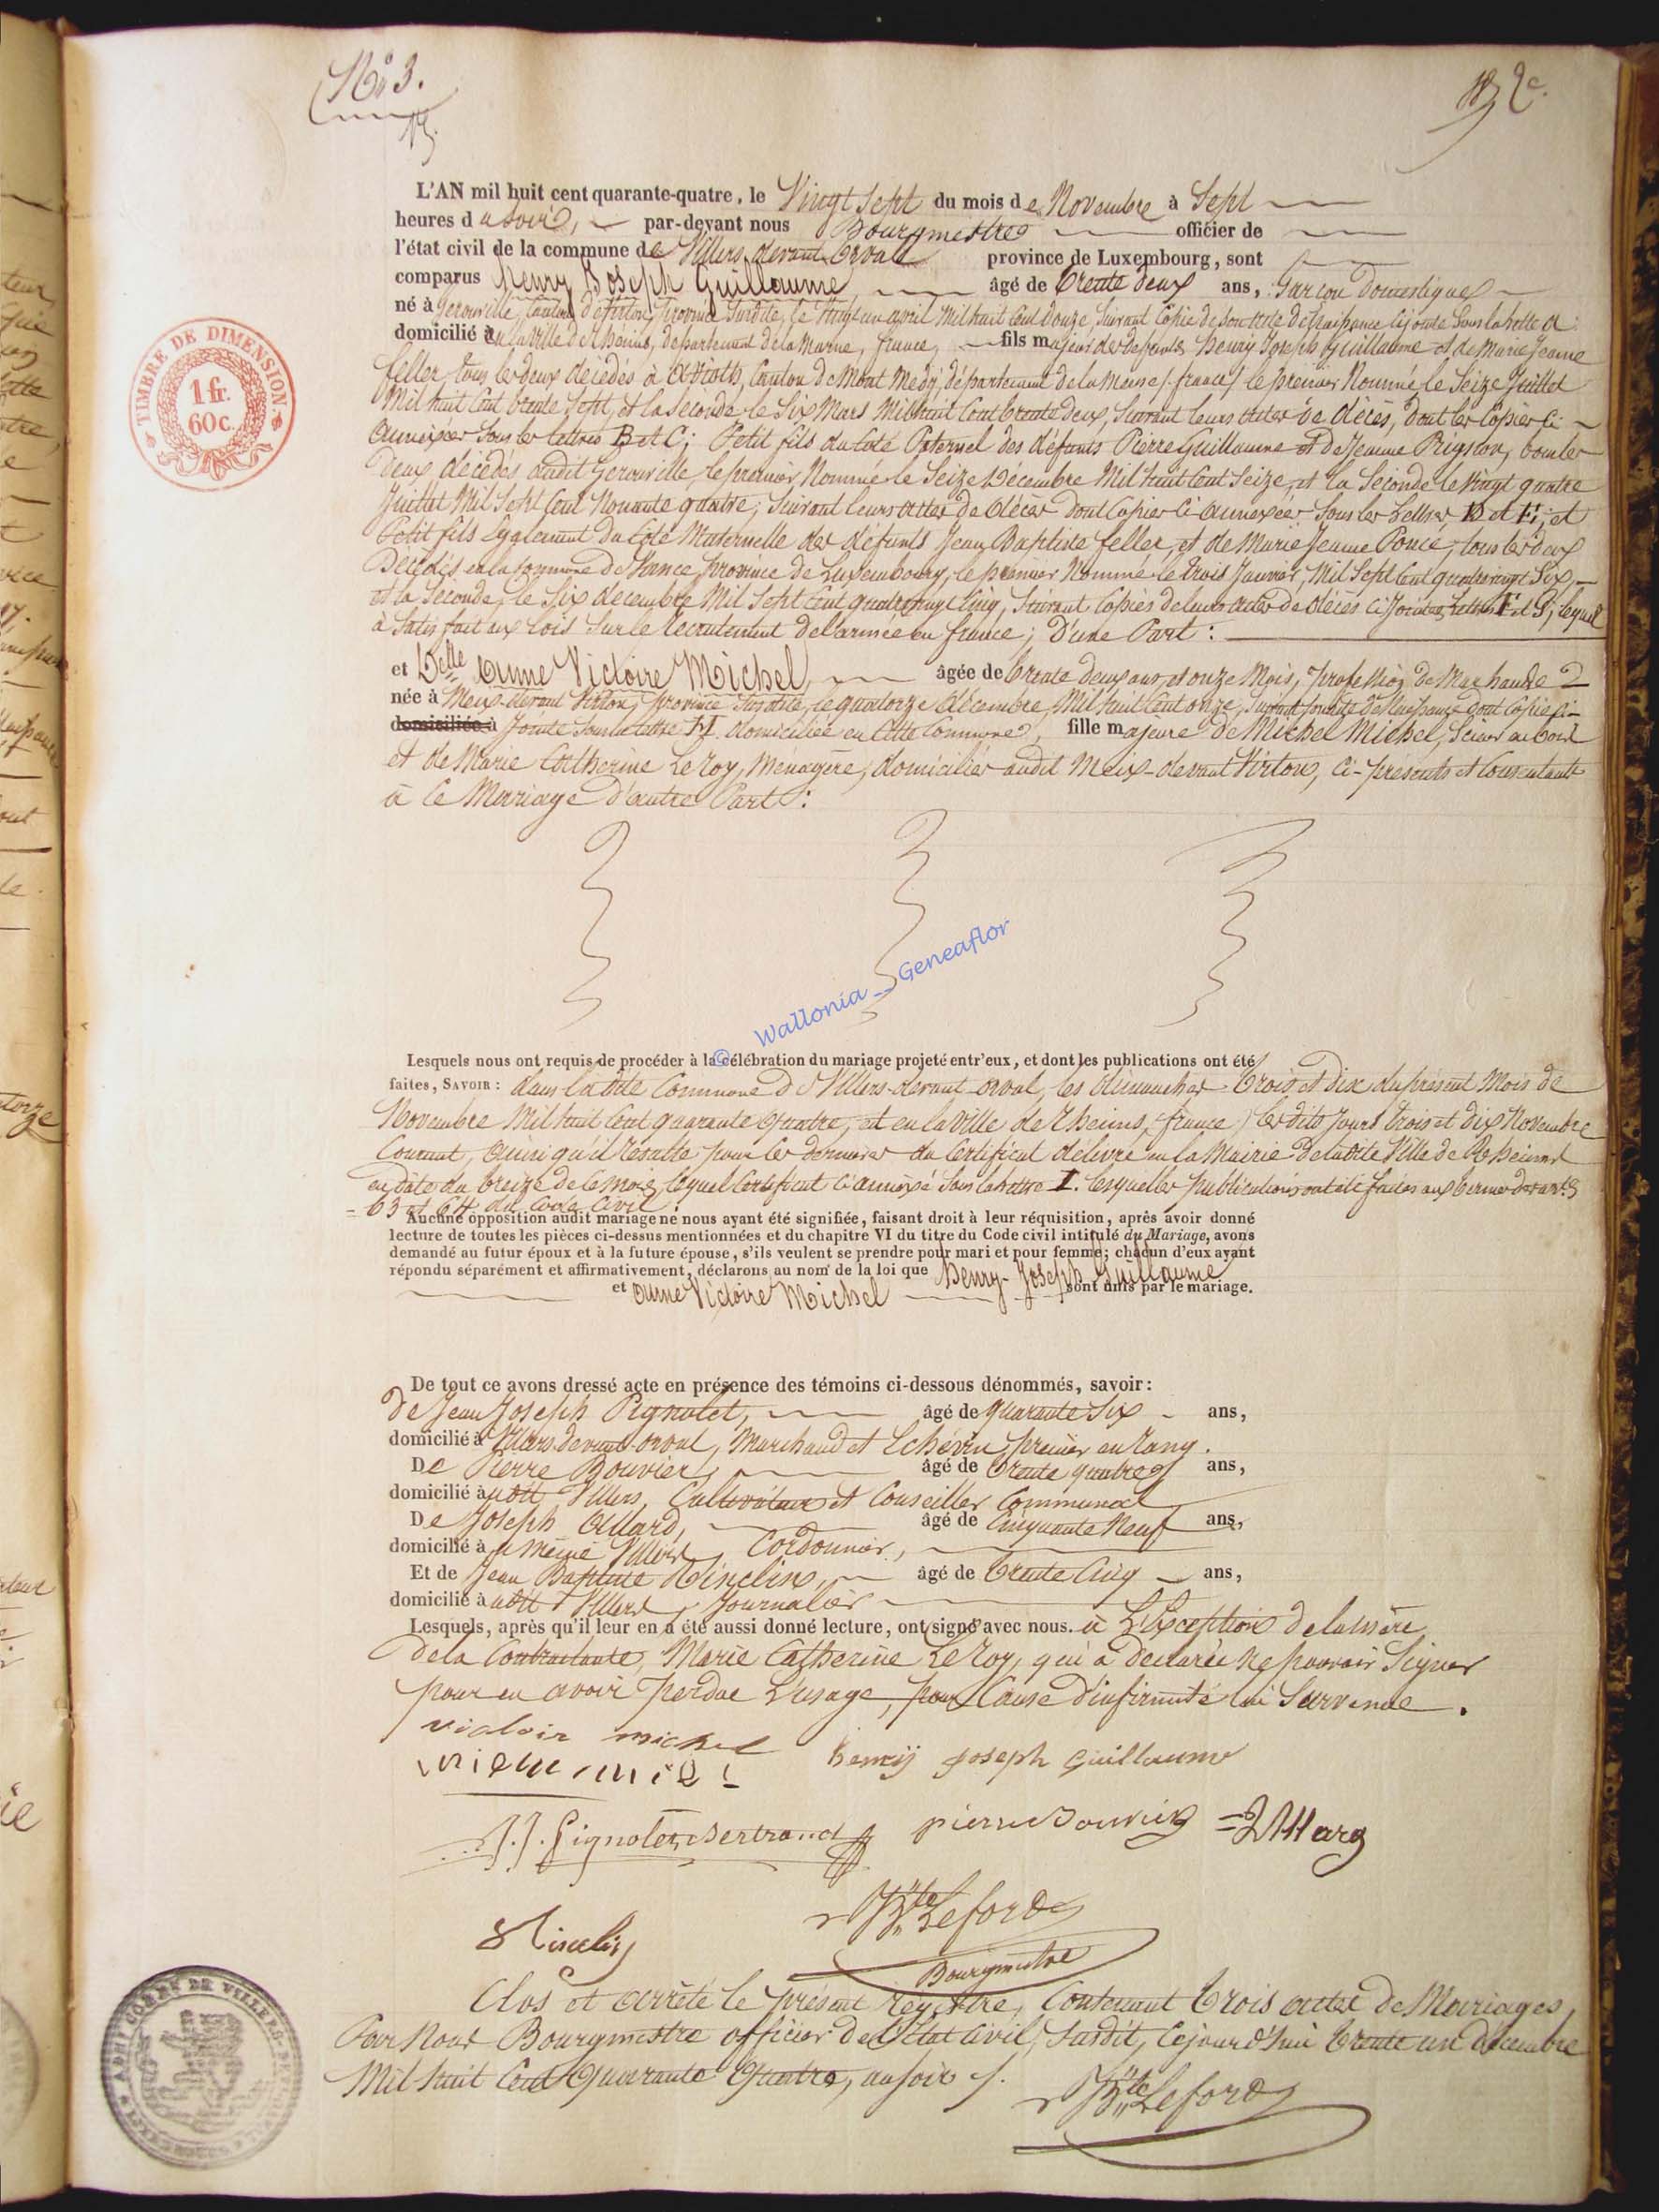 N° 3.
2e.
L'AN mil huit cent quarante-quatre, le Vingt Sept du mois de Novembre à Sept
heures du soir, par-devant nous Bourgmestre officier de
l'état civil de la commune de Villers devant Orval province de Luxembourg, sont
comparus Henry Joseph Guillaume âgé de trente deux ans, Garçon Domestique
né à Gerouville, Canton de Virton, Province Susdite, le Vingt un avril Mil huit Cent Douze, Suivant Copie de son acte de Naissance Cijointe Sous la lettre A.
domicilié en la Ville de Rheims, département de la Marne, france, fils majeur des défunts Henry Joseph Guillaume et de Marie Jeanne
feller, tous les deux décédés à Avioth, Canton de Mont Medy, département de la Meuse /france/ le premier Nommé le Seize Juillet
Mil huit Cent trente Sept, et la Seconde le Six Mars Mil huit Cent trente deux, Suivant leurs actes de décès, dont les Copies Ci-
annexées Sous les lettres B et C; Petit fils du Coté Paternel des défunts Pierre Guillaume et de Jeanne tous les
deux décédés audit Gerouville, le premier Nommé le Seize Décembre Mil huit Cent Seize, et la Seconde le Vingt quatre
Juillet Mil Sept Cent Nonante quatre; Suivant leurs actes de Décès dont Copies Ci-annexées Sous les Lettres D et E; et
Petit fils Egalement du Coté Maternelle des défunts Jean Baptiste feller, et de Marie Jeanne Ponce, tous les deux
Décédés en la Commune de Province de Luxembourg, le premier Nommé le trois Janvier, Mil Sept Cent quatre vingt Six,
et la Seconde, le Six décembre Mil Sept Cent quatre vingt Cinq, Suivant Copies de leurs actes de décès Ci Jointes Lettres F et G, lequel
à Satisfait aux Lois Sur le recrutement de l'armée en france; D'une Part:
et Delle Anne Victoire Michel âgée de trente deux ans et onze Mois, profession de Marchande
née à Meix-devant Virton, province Susdite, le quatorze décembre Mil huit Cent onze, Suivant Son acte de Naissance dont Copie ci-
domiciliée à Jointe Sous la lettre H. domiciliée en Cette Commune, fille majeure de Michel Michel, Scieur au bois
et de Marie Catherine Le Roy, Ménagère, domiciliés audit Meix-devant Virton, Ci-presents et Consentants
à Ce Mariage d'autre Part:
© Wallonia_Geneaflor
Lesquels nous ont requis de procéder à la célébration du mariage projeté entr'eux, et dont les publications ont été
faites, SAVOIR: dans la dite Commune de Villers-devant-Orval, les dimanches trois et dix du présent Mois de
Novembre Mil huit Cent quarante quatre, et en la Ville de Rheims, (france) lesdits Jours trois et dix Novembre
Courant, ainsi qu'il résulte pour les derniers du Certificat délivré en la Mairie de la dite Ville de Rheims
en date du treize de ce mois, lequel Certificat Ci annexé Sous la lettre I. lesquelles publications ont été faites aux termes des arts
63 et 64 du Code Civil.
Aucune opposition audit mariage ne nous ayant été signifiée, faisant droit à leur réquisition, après avoir donné
lecture de toutes les pièces ci-dessus mentionnées et du chapitre VI du titre du Code civil intitulé du Mariage, avons
demandé au futur époux et à la future épouse, s'ils veulent se prendre pour mari et pour femme; chacun d'eux ayant
répondu séparément et affirmativement, déclarons au nom de la loi que Henry-Joseph Guillaume
et Anne Victoire Michel sont unis par le mariage.
De tout ce avons dressé acte en présence des témoins ci-dessous dénommés, savoir:
De Jean Joseph Pignolet, âgé de quarante Six ans,
domicilié à Villers devant-orval, Marchand et Echevin premier en rang.
De Pierre Bouvier, âgé de trente quatre ans,
domicilié audit Villers, Cultivateur et Conseiller Communal
De Joseph Allard, âgé de Cinquante Neuf ans,
domicilié au même Villers, Cordonnier,
Et de Jean Baptiste Hinclin, âgé de trente Cinq ans,
domicilié audit Villers, Journalier
Lesquels, après qu'il leur en a été aussi donné lecture, ont signé avec nous. à L'Exception de la mère
de la Contractante, Marie Catherine Le Roy, qui à Déclarée ne pouvoir Signer
pour en avoir perdue L'usage, pour Cause d'infirmité lui Survenue.
victoir michel
henry joseph Guillaume
J.J. Pignolet Bertrand
pierre Bouvier
Allard
Hinclin
Leforde
Bourgmestre
Clos et arrêté le présent registre, Contenant trois actes de Mariages,
Par Nous Bourgmestre officier de l'Etat Civil, Susdit, Cejourd'hui trente un décembre
Mil huit Cent Quarante Quatre, au soir.
Leforde
TIMBRE DE DIMENSION.
1 fr.
60c.